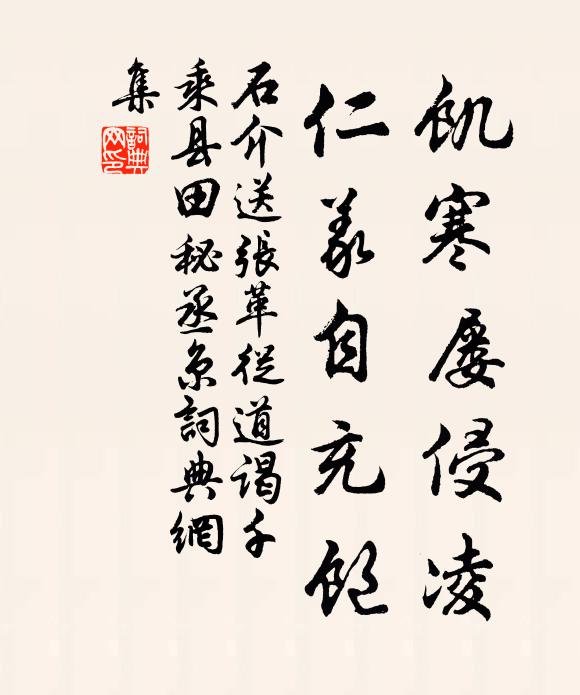 飢寒屢侵凌
仁義自充飽
石介送張革從道謁千
乘县田秘丞京詞典網
集
詞典
网印